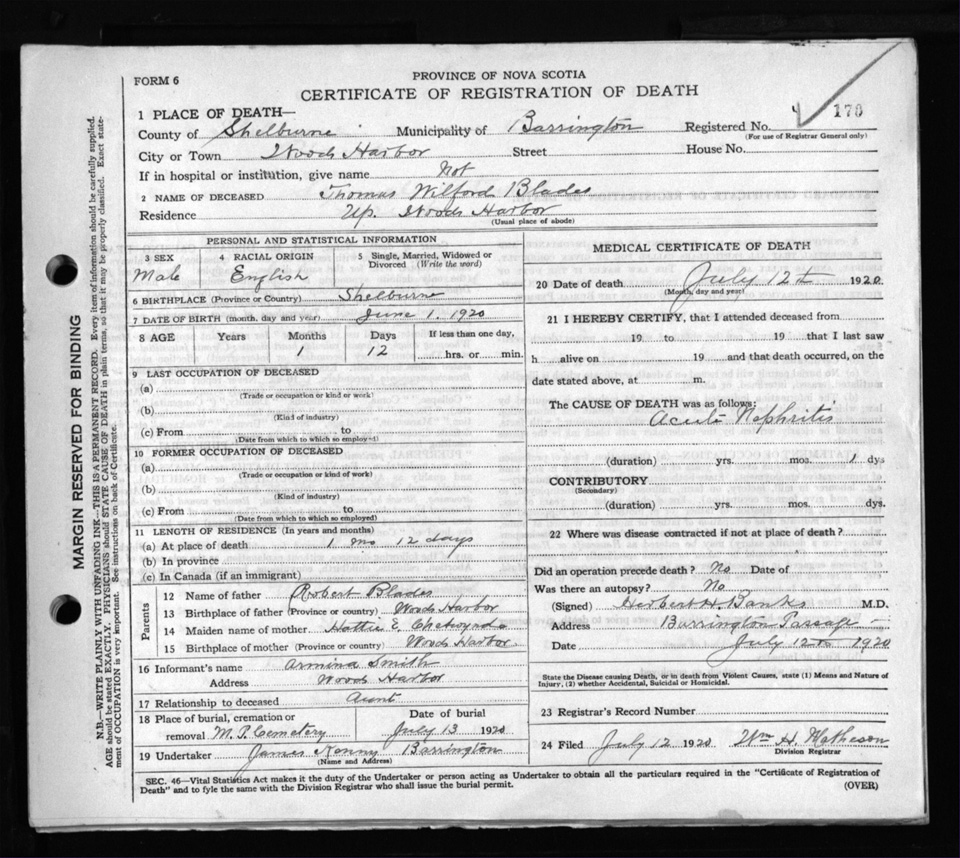 FORM 6
PROVINCE OF NOVA SCOTIA
CERTIFICATE OF REGISTRATION OF DEATH
1 PLACE OF DEATH—
County of Shelburne Municipality of Barrington Registered No. 170
(For use of Registrar General only)
City or Town Woods Harbor Street House No.
If in hospital or institution, give name Not
2 NAME OF DECEASED Thomas Wilford Blades
Residence Up. Woods Harbor
(Usual place of abode)
PERSONAL AND STATISTICAL INFORMATION
3 SEX 4 RACIAL ORIGIN 5 Single, Married, Widowed or Divorced (Write the word)
Male English
6 BIRTHPLACE (Province or Country) Shelburne
7 DATE OF BIRTH (month, day and year) June 1. 1920
8 AGE Years Months Days If less than one day,
1 12 hrs. or min.
9 LAST OCCUPATION OF DECEASED
(a)
(Trade or occupation or kind or work)
(b)
(Kind of industry)
(c) From to
(Date from which to which so employed)
10 FORMER OCCUPATION OF DECEASED
(a)
(Trade or occupation or kind of work)
(b)
(Kind of industry)
(c) From to
(Date from which to which so employed)
11 LENGTH OF RESIDENCE (In years and months)
(a) At place of death 1 mo 12 days
(b) In province
(c) In Canada (if an immigrant)
Parents
12 Name of father Robert Blades
13 Birthplace of father (Province or country) Woods Harbor
14 Maiden name of mother Hattie E. Chetwynde
15 Birthplace of mother (Province or country) Woods Harbor
16 Informant's name Armina Smith
Address Woods Harbor
17 Relationship to deceased Aunt
18 Place of burial, cremation or removal M.P. Cemetery Date of burial July 13 1920
19 Undertaker James Kenny Barrington
(Name and Address)
MEDICAL CERTIFICATE OF DEATH
20 Date of death July 12th 1920
(Month, day and year)
21 I HEREBY CERTIFY, that I attended deceased from
19 to 19 that I last saw
h alive on 19 and that death occurred, on the
date stated above, at m.
The CAUSE OF DEATH was as follows:
Acute Nephritis
(duration) yrs. mos. 1 dys
CONTRIBUTORY
(Secondary)
(duration) yrs. mos. dys.
22 Where was disease contracted if not at place of death?
Did an operation precede death? No Date of
Was there an autopsy? No
(Signed) Herbert H. Banks M.D.
Address Barrington Passage
Date July 12th 1920
State the Disease causing Death, or in death from Violent Causes, state (1) Means and Nature of
Injury, (2) whether Accidental, Suicidal or Homicidal.
23 Registrar's Record Number
24 Filed July 12 1920 Wm H. Matheson
Division Registrar
SEC. 46—Vital Statistics Act makes it the duty of the Undertaker or person acting as Undertaker to obtain all the particulars required in the "Certificate of Registration of
Death" and to fyle the same with the Division Registrar who shall issue the burial permit.
(OVER)
MARGIN RESERVED FOR BINDING
N.B.—WRITE PLAINLY WITH UNFADING INK—THIS IS A PERMANENT RECORD. Every item of information should be carefully supplied.
AGE should be stated EXACTLY. PHYSICIANS should STATE CAUSE OF DEATH in plain terms, so that it may be properly classified. Exact state-
ment of OCCUPATION is very important. See instructions on back of Certificate.